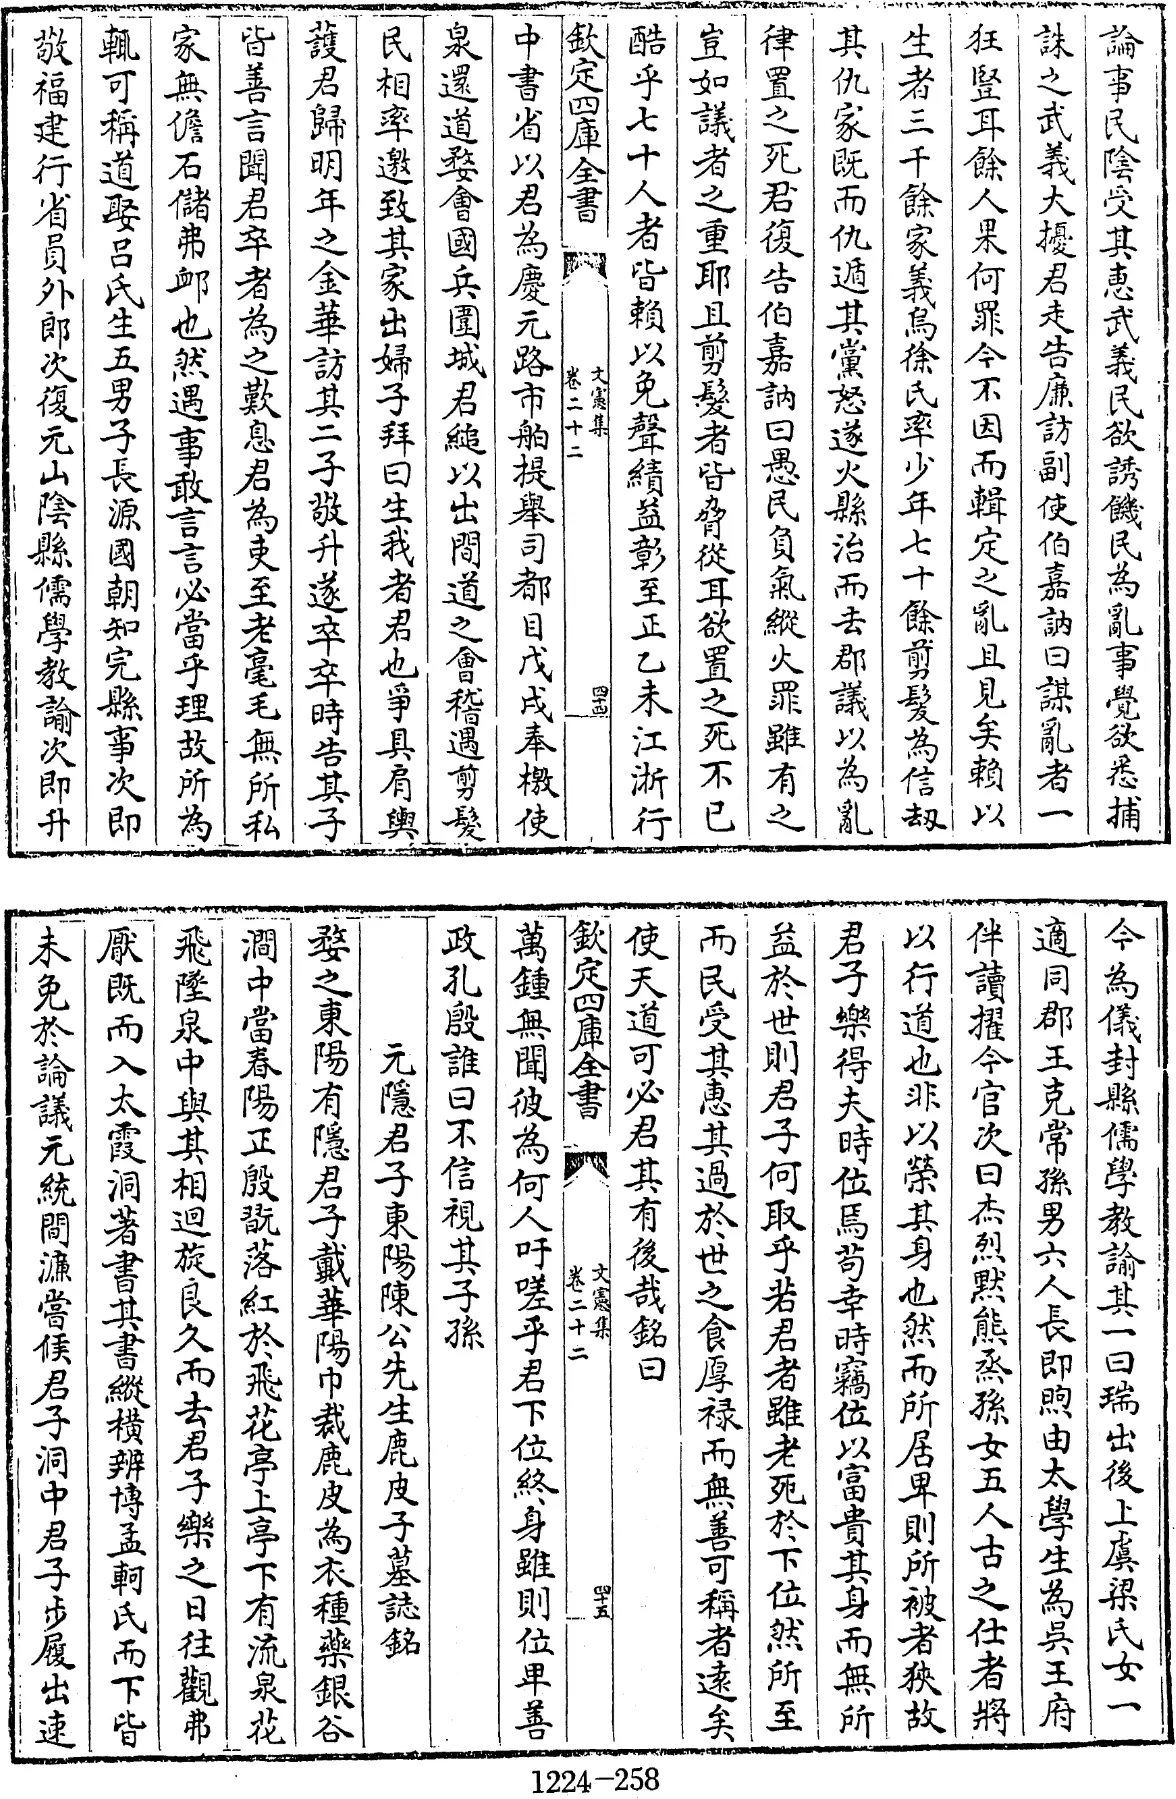 論事民陰受其恵武義民欲誘饑民為亂事覺欲悉捕
誅之武義大擾君走告廉訪副使伯嘉訥曰謀亂者一
狂豎耳餘人果何罪今不因而輯定之亂且見矣賴以
生者三千餘家義烏徐氏率少年七十餘剪髮為信刼
其仇家既而仇遁其黨怒遂火縣治而去郡議以為亂
律置之死君復告伯嘉訥曰愚民負氣縱火罪雖有之
豈如議者之重耶且剪髮者皆脅從耳欲置之死不已
酷乎七十人者皆賴以免聲績益彰至正乙未江浙行
欽定四庫全書
文憲集
卷二十二
四十四
中書省以君為慶元路市舶提舉司都目戊戌奉檄使
泉還道婺會國兵圍城君縋以出間道之會稽遇剪髮
民相率邀致其家出婦子拜曰生我者君也爭具肩輿
護君歸明年之金華訪其二子敬升遂卒卒時告其子
皆善言聞君卒者為之歎息君為吏至老毫毛無所私
家無儋石儲弗卹也然遇事敢言言必當乎理故所為
輒可稱道娶呂氏生五男子長源國朝知完縣事次即
敬福建行省員外郎次復元山陰縣儒學教諭次即升
今為儀封縣儒學教諭其一曰瑞出後上虞梁氏女一
適同郡王克常孫男六人長即煦由太學生為吳王府
伴讀擢今官次曰杰烈黙熊烝孫女五人古之仕者將
以行道也非以榮其身也然而所居卑則所被者狹故
君子樂得夫時位焉苟幸時竊位以富貴其身而無所
益於世則君子何取乎若君者雖老死於下位然所至
而民受其惠其過於世之食厚禄而無善可稱者遠矣
使天道可必君其有後哉銘曰
欽定四庫全書
文憲集
卷二十二
四十五
萬鍾無聞彼為何人吁嗟乎君下位終身雖則位卑善
政孔殷誰曰不信視其子孫
元隱君子東陽陳公先生鹿皮子墓誌銘
婺之東陽有隱君子戴華陽巾裁鹿皮為衣種藥銀谷
澗中當春陽正殷翫落紅於飛花亭上亭下有流泉花
飛墜泉中與其相迴旋良久而去君子樂之日往觀弗
厭既而入太霞洞著書其書縱橫辨博孟軻氏而下皆
未免於論議元統間濂當候君子洞中君子步履出速
1224-258